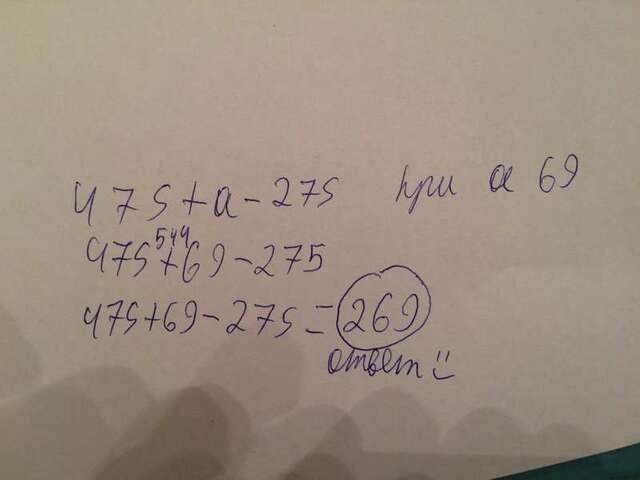 475+a-275 при a 69
544
475+69-275
475+69-275=269
ответ: